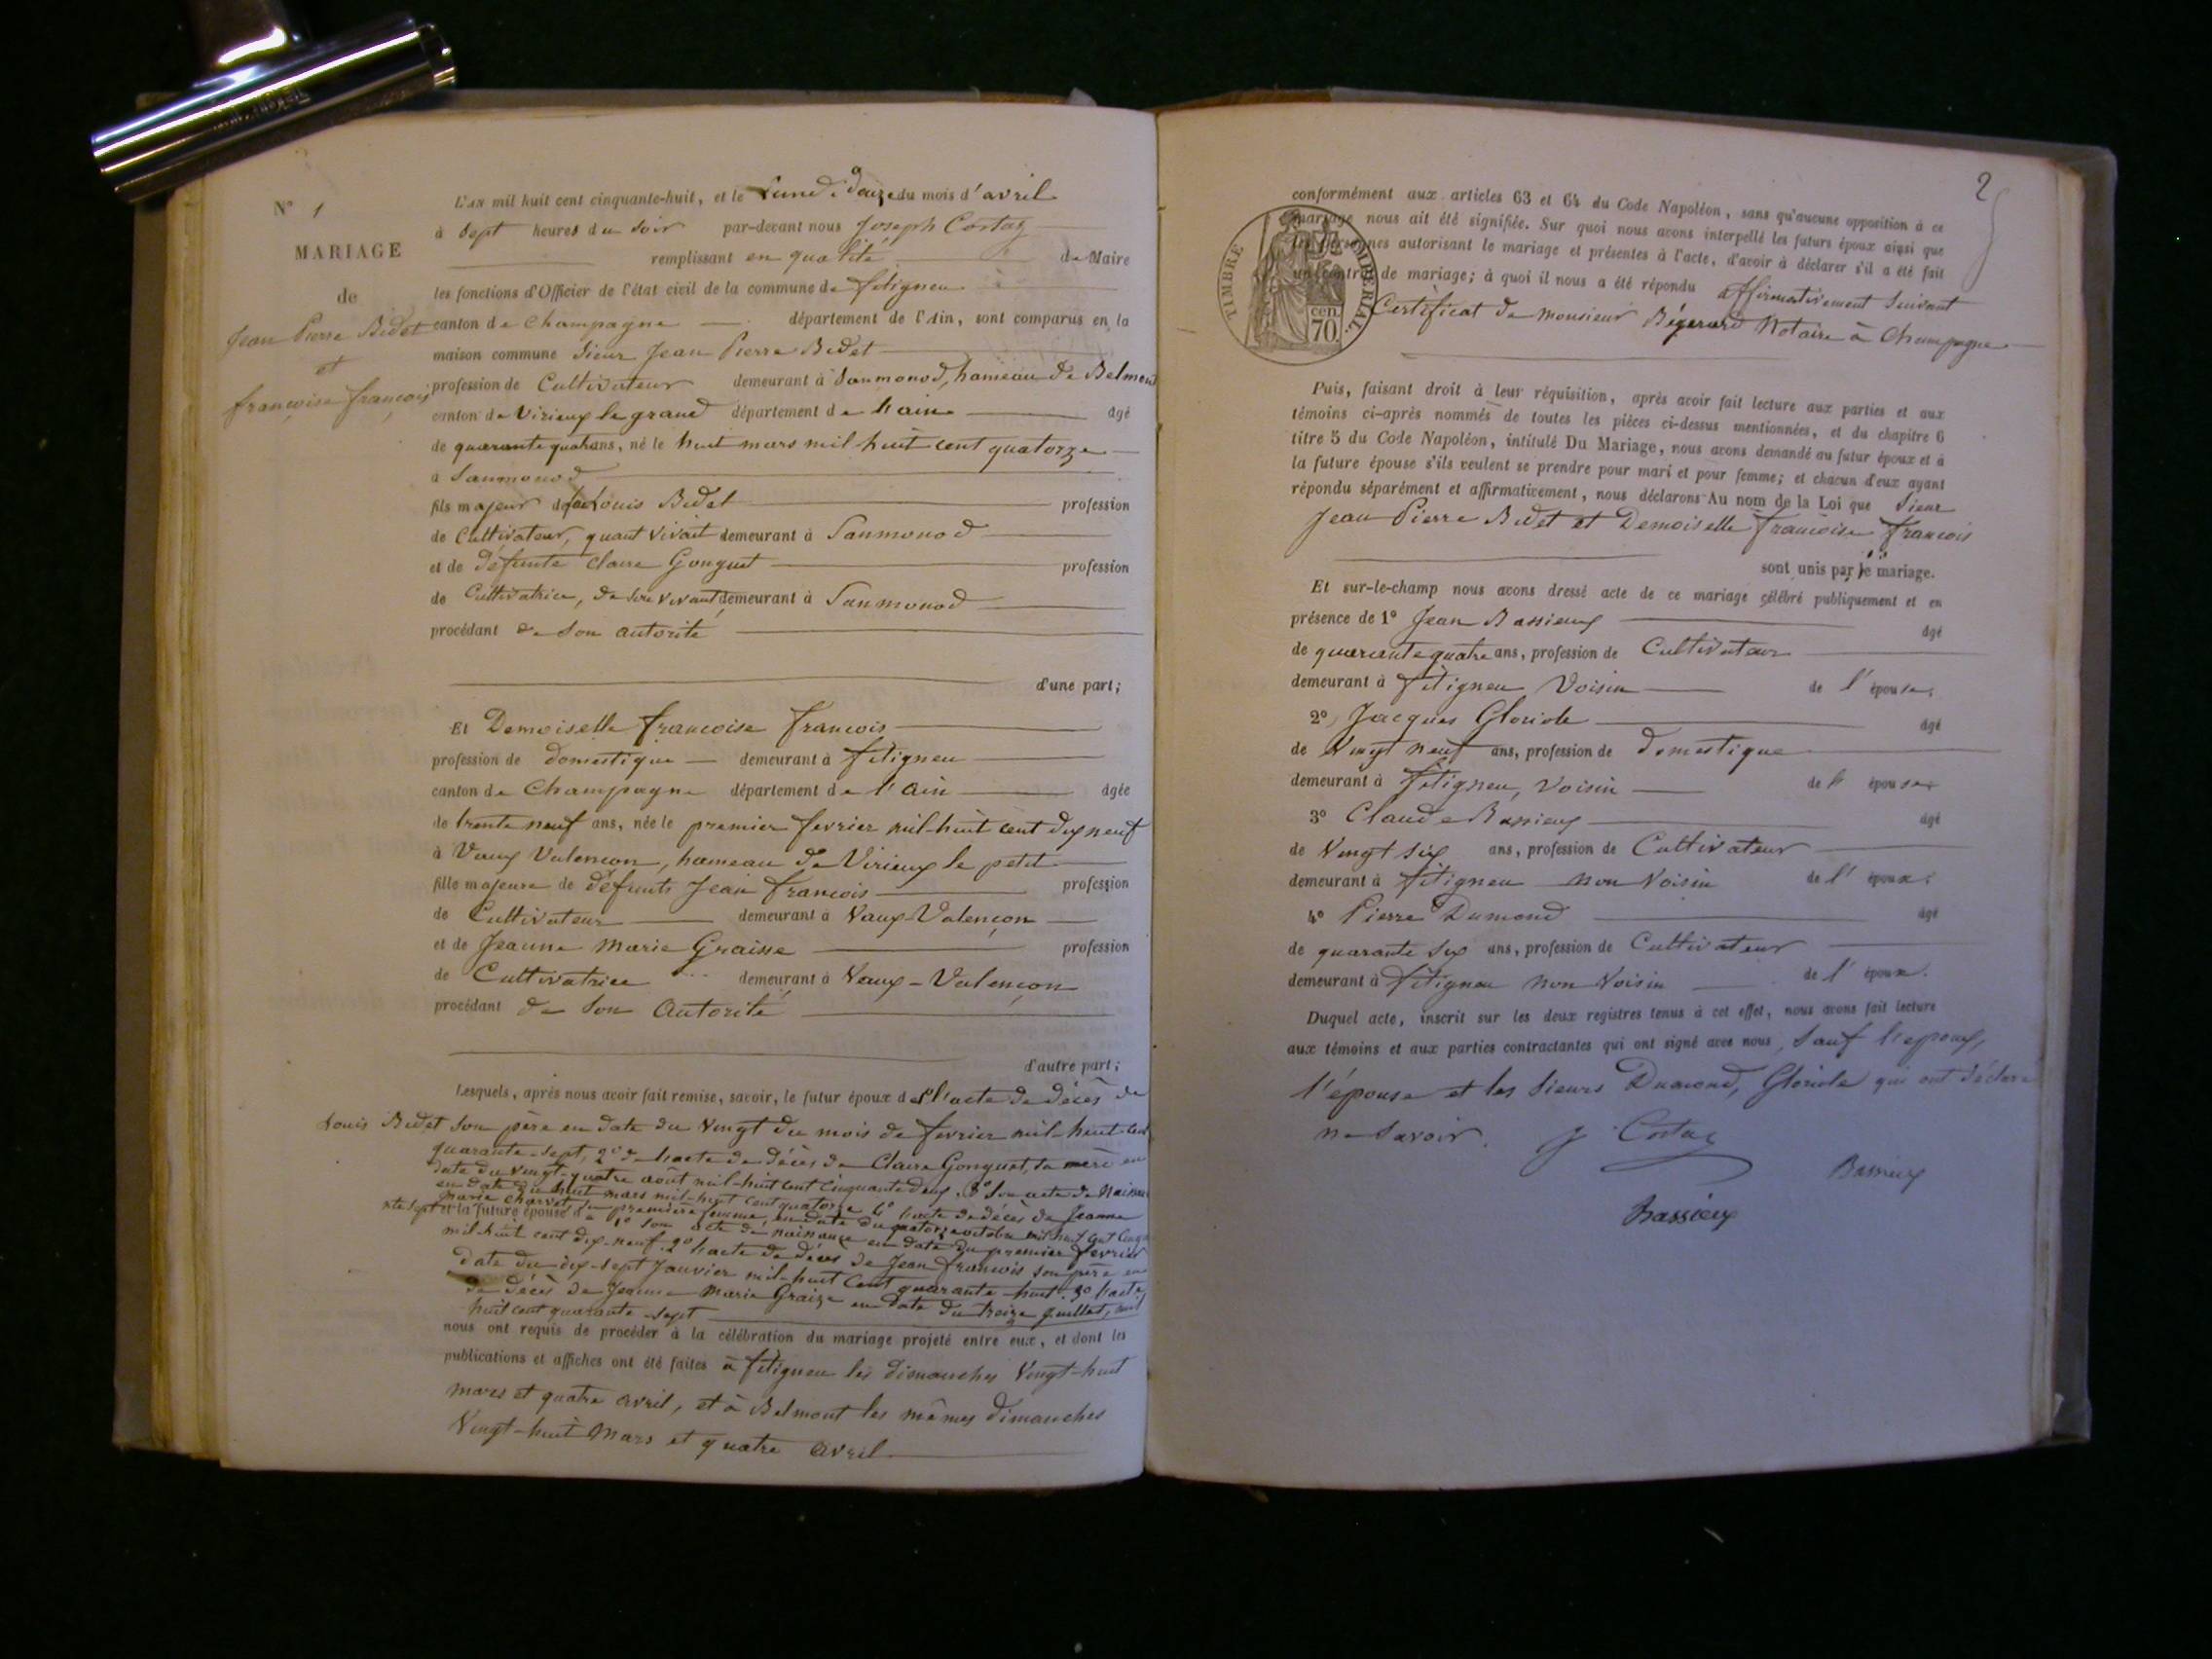 N° 1
MARIAGE
de
Jean Pierre Bidet
et
françoise françois
L'AN mil huit cent cinquante-huit, et le Lundi douze du mois d'avril
à Sept heures du Soir par-devant nous Joseph Costaz
remplissant en qualité de Maire
les fonctions d'Officier de l'état civil de la commune de fitigneu
canton de Champagne département de l'Ain, sont comparus en la
maison commune Sieur Jean Pierre Bidet
profession de Cultivateur demeurant à Sanmonod, hameau de Belmont
canton de Virieux le grand département de Lain âgé
de quarante quatre ans, né le huit mars mil huit cent quatorze
à Sanmonod
fils majeur de Louis Bidet profession
de Cultivateur, quant vivait demeurant à Sanmonod
et de défunte Claire Gonguet profession
de Cultivatrice, de son vivant demeurant à Sanmonod
procédant de Son autorité
d'une part;
Et Demoiselle françoise françois
profession de domestique demeurant à fitigneu
canton de Champagne département de l'Ain âgée
de trente neuf ans, née le premier fevrier mil-huit cent dix neuf
à Vaux Valençon, hameau de Virieux le petit
fille majeure de défunts Jean françois profession
de Cultivateur demeurant à Vaux-Valençon
et de Jeanne Marie Graisse profession
de Cultivatrice demeurant à Vaux-Valençon
procédant de Son Autorité
d'autre part;
Lesquels, après nous avoir fait remise, savoir, le futur époux de l'acte de décès de
Louis Bidet son père en date du Vingt du mois de fevrier mil-huit cent
quarante-sept, 2° de l'acte de décès de Claire Gonguet, sa mère en
date du vingt-quatre août mil-huit cent cinquante deux. 3° Son acte de Naissance
en date du huit mars mil-huit cent quatorze 4° l'acte de décès de Jeanne
Marie Charvet sa première femme, en date du quatorze octobre mil huit cent cinqua
nte sept et la future épouse d 1° son acte de naissance en date du premier fevrier
mil-huit cent dix-neuf. 2° l'acte de décès de Jean françois son père en
date du dix-sept Janvier mil-huit cent quarante-huit. 3° l'acte
de décès de Jeanne Marie Graisse en date du treize Juillet, mil
huit cent quarante-sept
nous ont requis de procéder à la célébration du mariage projeté entre eux, et dont les
publications et affiches ont été faites à fitigneu les dimanches Vingt-huit
mars et quatre avril, et à Belmont les mêmes dimanches
Vingt-huit Mars et quatre Avril
2
conformément aux articles 63 et 64 du Code Napoléon, sans qu'aucune opposition à ce
mariage nous ait été signifiée. Sur quoi nous avons interpellé les futurs époux ainsi que
les personnes autorisant le mariage et présentes à l'acte, d'avoir à déclarer s'il a été fait
un contrat de mariage; à quoi il nous a été répondu affirmativement Suivant
Certificat de monsieur Notaire à Champagne
TIMBRE IMPERIAL.
cen.
70.
Puis, faisant droit à leur réquisition, après avoir fait lecture aux parties et aux
témoins ci-après nommés de toutes les pièces ci-dessus mentionnées, et du chapitre 6
titre 5 du Code Napoléon, intitulé Du Mariage, nous avons demandé au futur époux et à
la future épouse s'ils veulent se prendre pour mari et pour femme; et chacun d'eux ayant
répondu séparément et affirmativement, nous déclarons Au nom de la Loi que Sieur
Jean Pierre Bidet et Demoiselle françoise françois
sont unis par le mariage.
Et sur-le-champ nous avons dressé acte de ce mariage célébré publiquement et en
présence de 1° Jean Bassieux âgé
de quarante quatre ans, profession de Cultivateur
demeurant à fitigneu Voisin de l'épouse.
2° Jacques Gloriole âgé
de Vingt neuf ans, profession de domestique
demeurant à fitigneu, voisin de l'épouse
3° Claude Bassieux âgé
de Vingt Six ans, profession de Cultivateur
demeurant à fitigneu non Voisin de l'époux.
4° Pierre Dumond âgé
de quarante Six ans, profession de Cultivateur
demeurant à fitigneu non Voisin de l'époux.
Duquel acte, inscrit sur les deux registres tenus à cet effet, nous avons fait lecture
aux témoins et aux parties contractantes qui ont signé avec nous, Sauf l'époux,
l'épouse et les Sieurs Dumond, Gloriole qui ont déclaré
ne Savoir. J Costaz
Bassieux
Bassieux